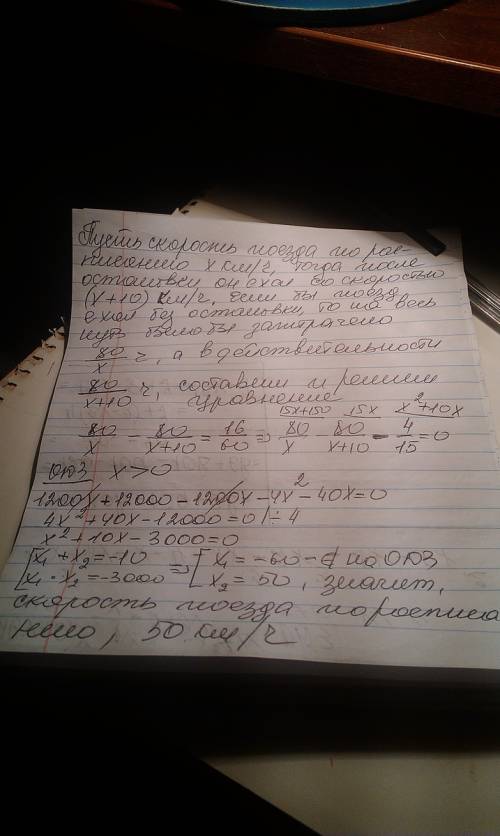 Пусть скорость поезда по рас-
писанию x км/ч, тогда после
остановки он ехал со скоростью
(x+10) км/ч, если бы поезд
ехал без остановки, то на весь
путь было бы затрачено
80/x ч, а в действительности
80/(x+10) ч, составим и решим
уравнение
80/x - 80/(x+10) = 16/60 => 15x+150 80/x - 15x 80/(x+10) - x²+10x 4/15 = 0
ОДЗ x>0
1200x+12000-1200x-4x²-40x=0
4x²+40x-12000=0 | ÷ 4
x²+10x-3000=0
[x₁+x₂=-10 => [x₁=-60-∉ по ОДЗ
[x₁·x₂=-3000 [x₂=50, значит,
скорость поезда по расписа
нию, 50 км/ч